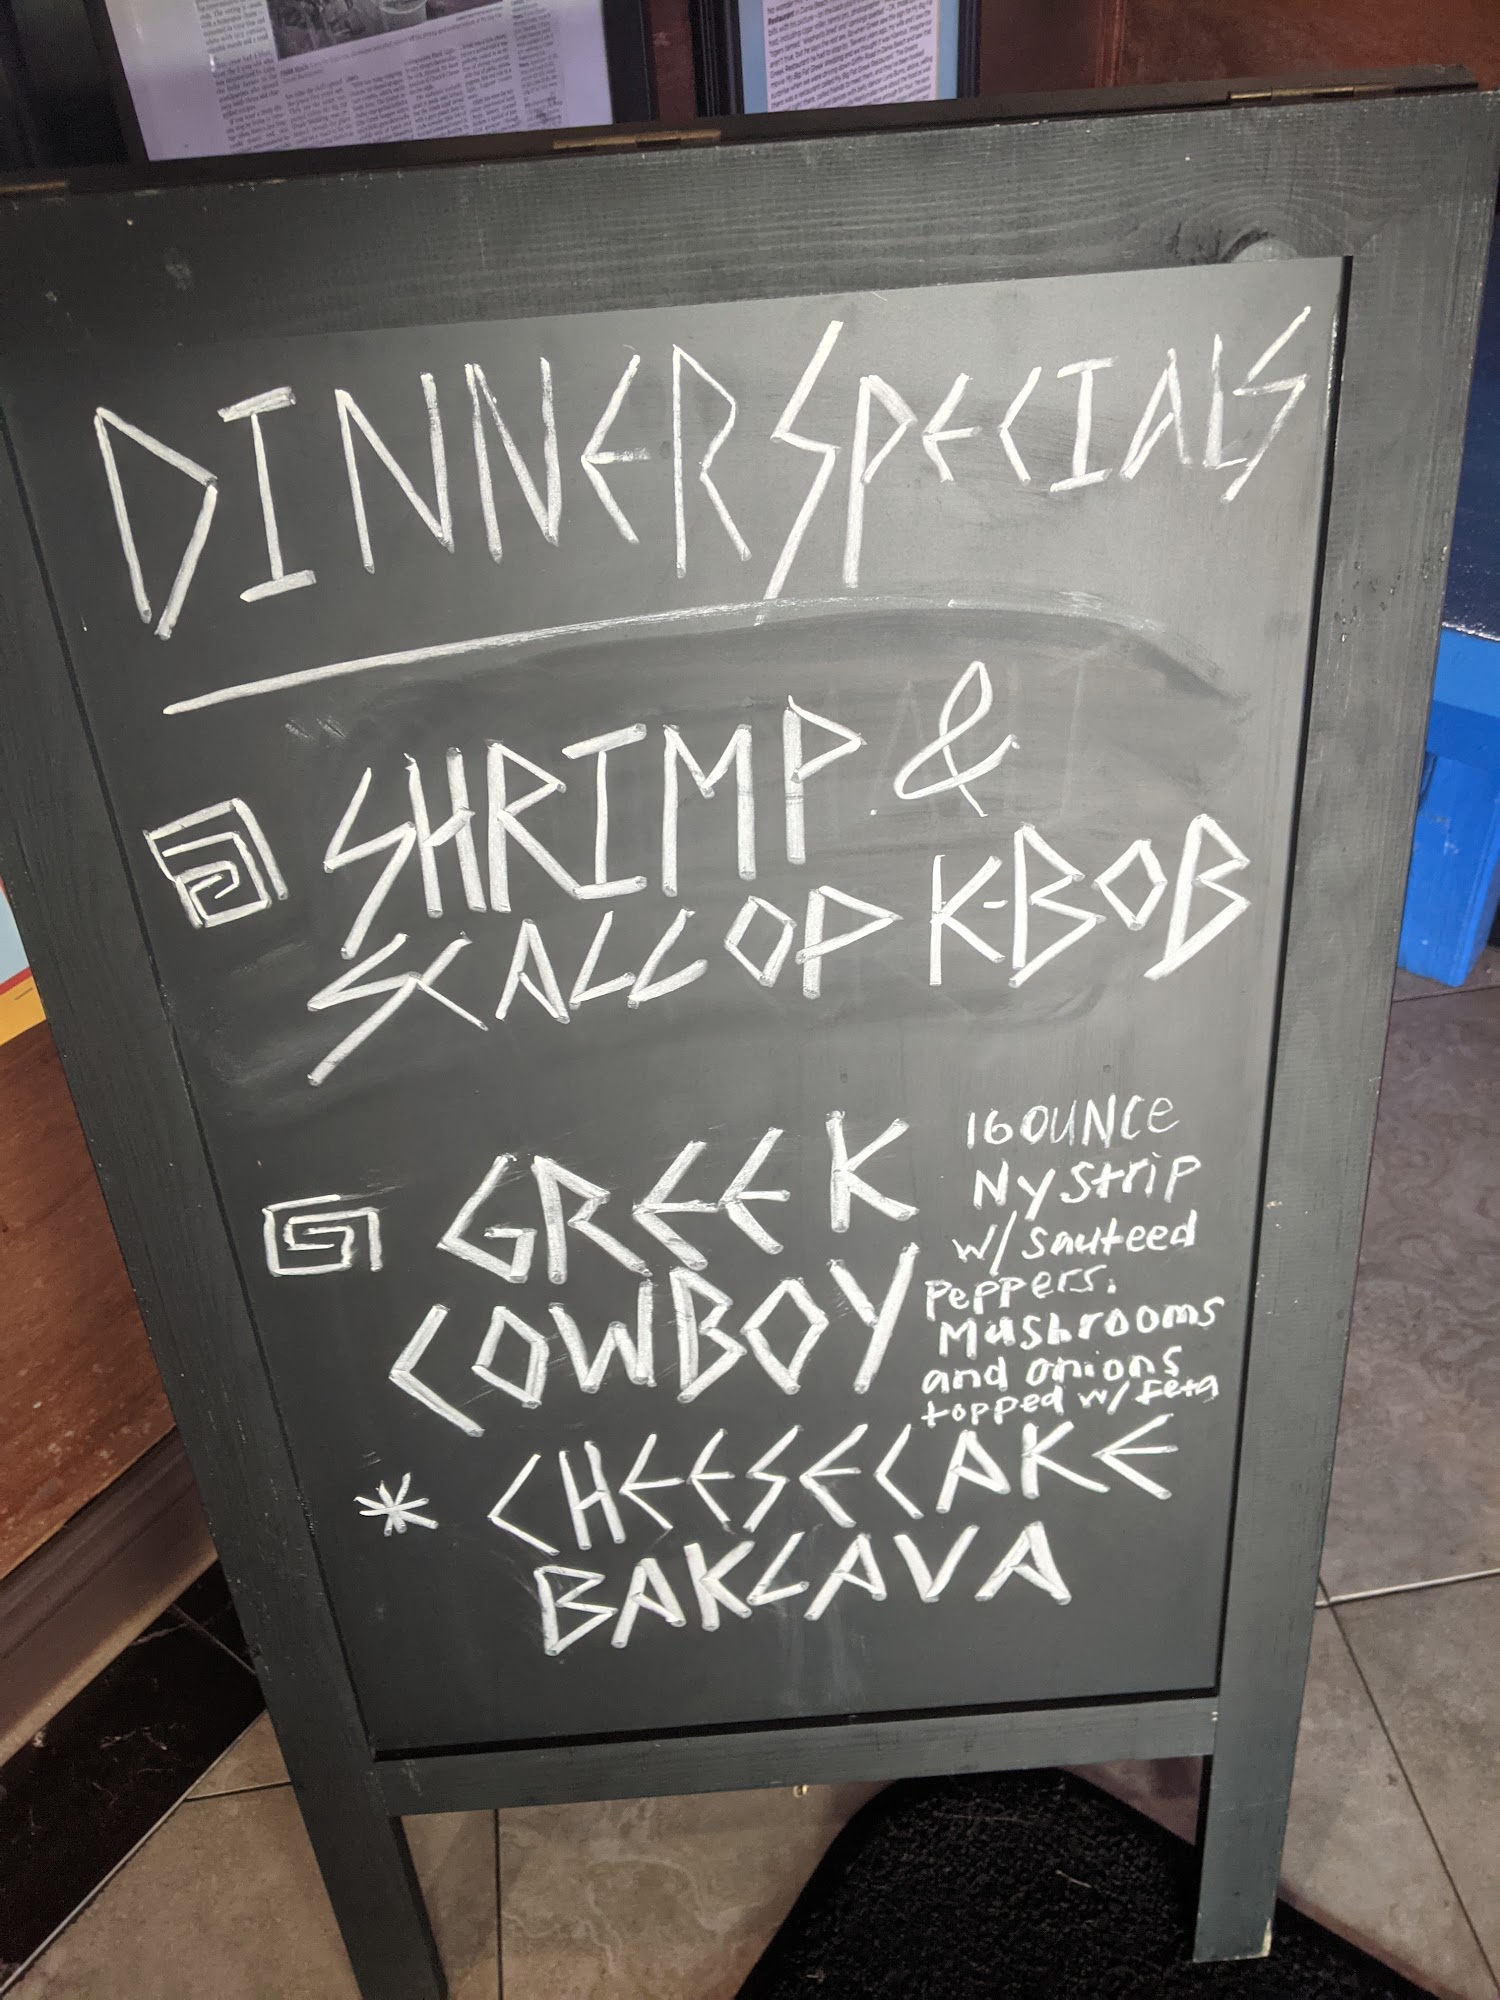 DINNER SPECIALS
SHRIMP &
SCALLOP K-BOB
GREEK
COWBOY
16 OUNCE
NY Strip
w/ sauteed
Peppers.
Mushrooms
and onions
topped w/ Feta
* CHEESECAKE
BAKLAVA